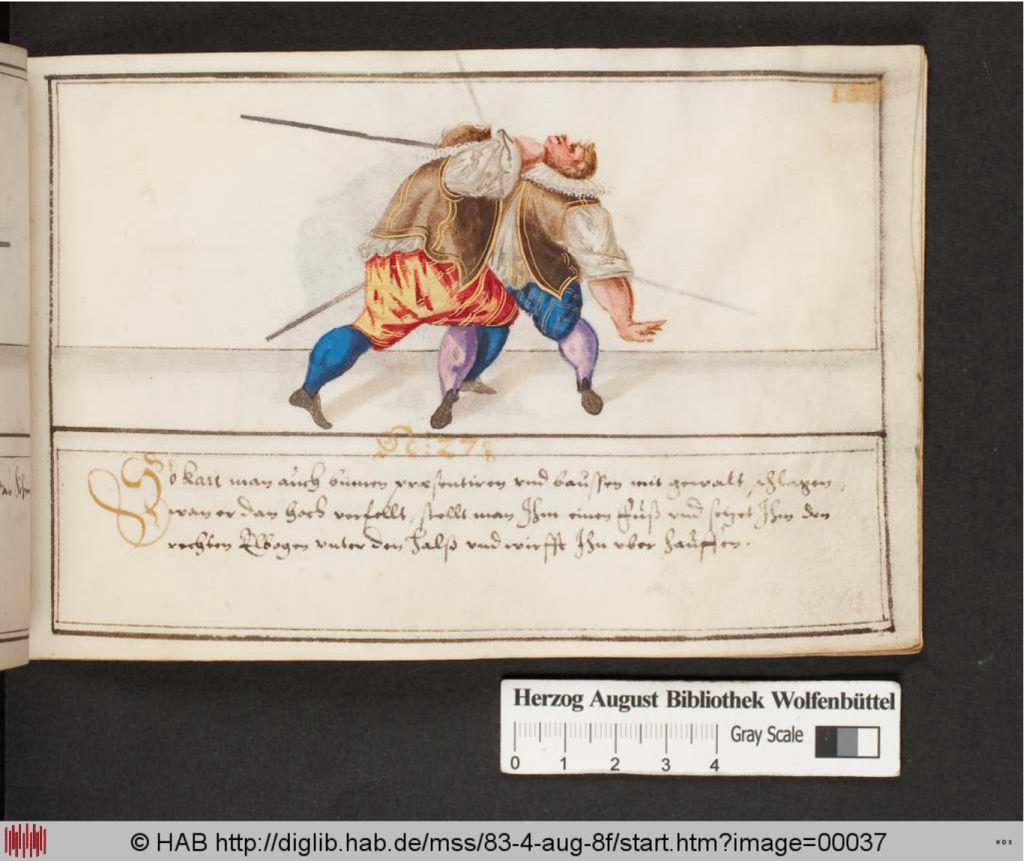 N: 27:
So kan man auch binnen præsentiren vnd baussen mit gewalt schlagen,
wan er dan hoch verfellt, stellt man Ihm einen fuß vnd setzet Ihm den
rechten Elbogen vnter den Halß vnd wirfft Ihn vber hauffen.
Herzog August Bibliothek Wolfenbüttel
Gray Scale
0 1 2 3 4
© HAB http://diglib.hab.de/mss/83-4-aug-8f/start.htm?image=00037